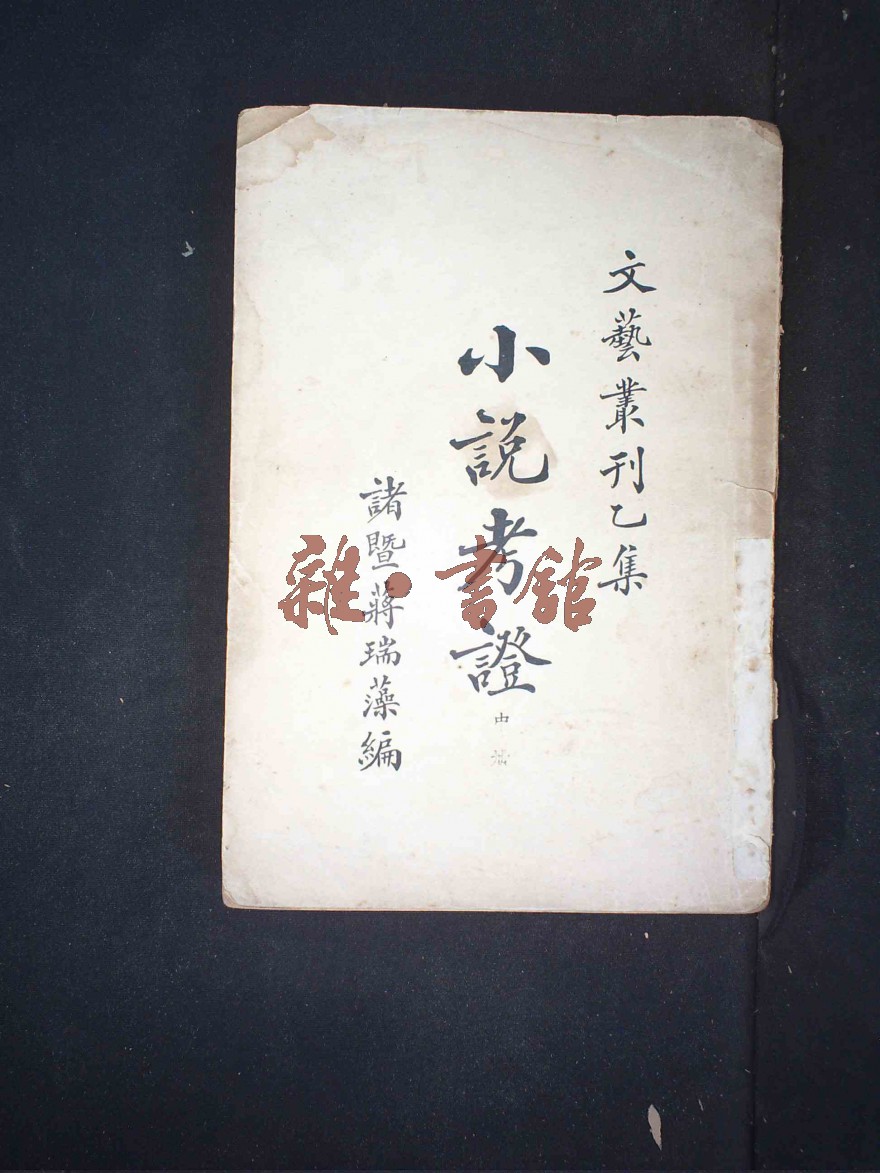 文藝叢刊乙集
小說考證
中
諸暨蔣瑞藻編
雜·書館